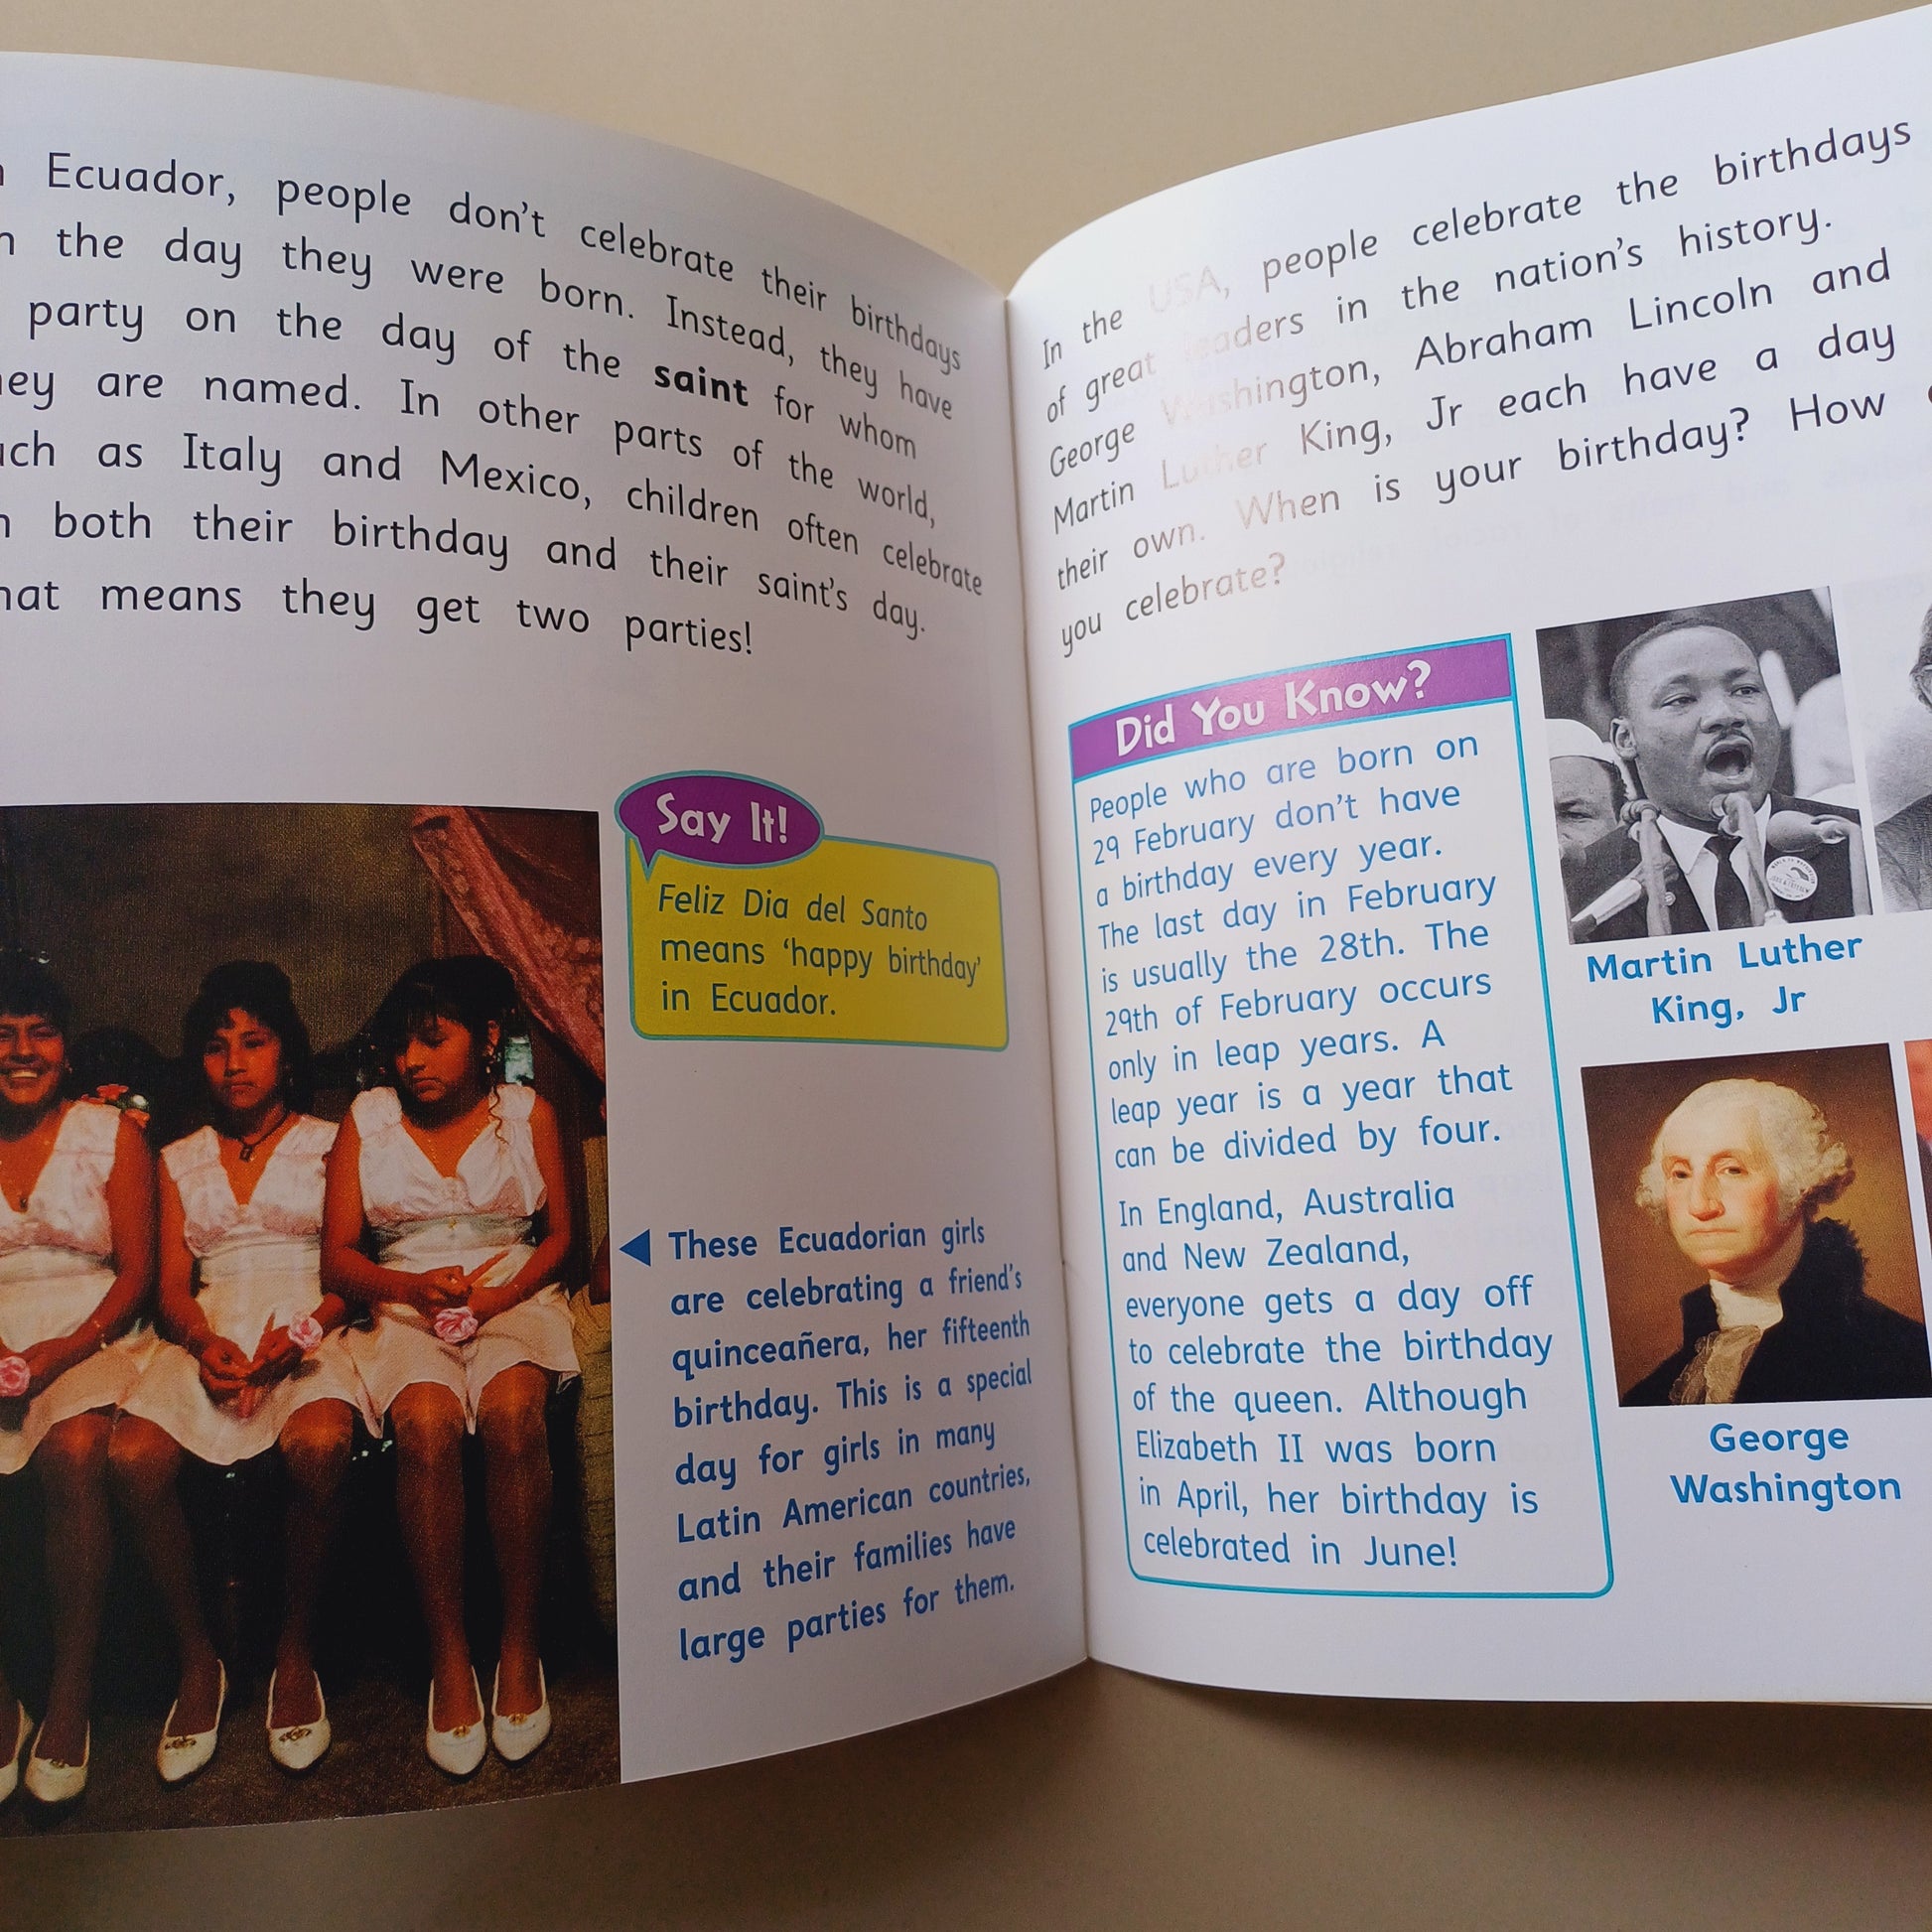 Ecuador, people don't celebrate their birthdays
the day they were born. Instead, they have
party on the day of the saint for whom
are named. In other parts of the world,
as Italy and Mexico, children often celebrate
both their birthday and their saint's day.
means they get two parties!
Say It!
Feliz Dia del Santo
means 'happy birthday'
in Ecuador.
These Ecuadorian girls
are celebrating a friend's
quinceañera, her fifteenth
birthday. This is a special
day for girls in many
Latin American countries,
and their families have
large parties for them.
In the USA, people celebrate the birthdays
of great leaders in the nation's history.
George Washington, Abraham Lincoln and
Martin Luther King, Jr each have a day
their own. When is your birthday? How
you celebrate?
Did You Know?
People who are born on
29 February don't have
a birthday every year.
The last day in February
is usually the 28th. The
29th of February occurs
only in leap years. A
leap year is a year that
can be divided by four.
In England, Australia
and New Zealand,
everyone gets a day off
to celebrate the birthday
of the queen. Although
Elizabeth II was born
in April, her birthday is
celebrated in June!
Martin Luther
King, Jr
George
Washington